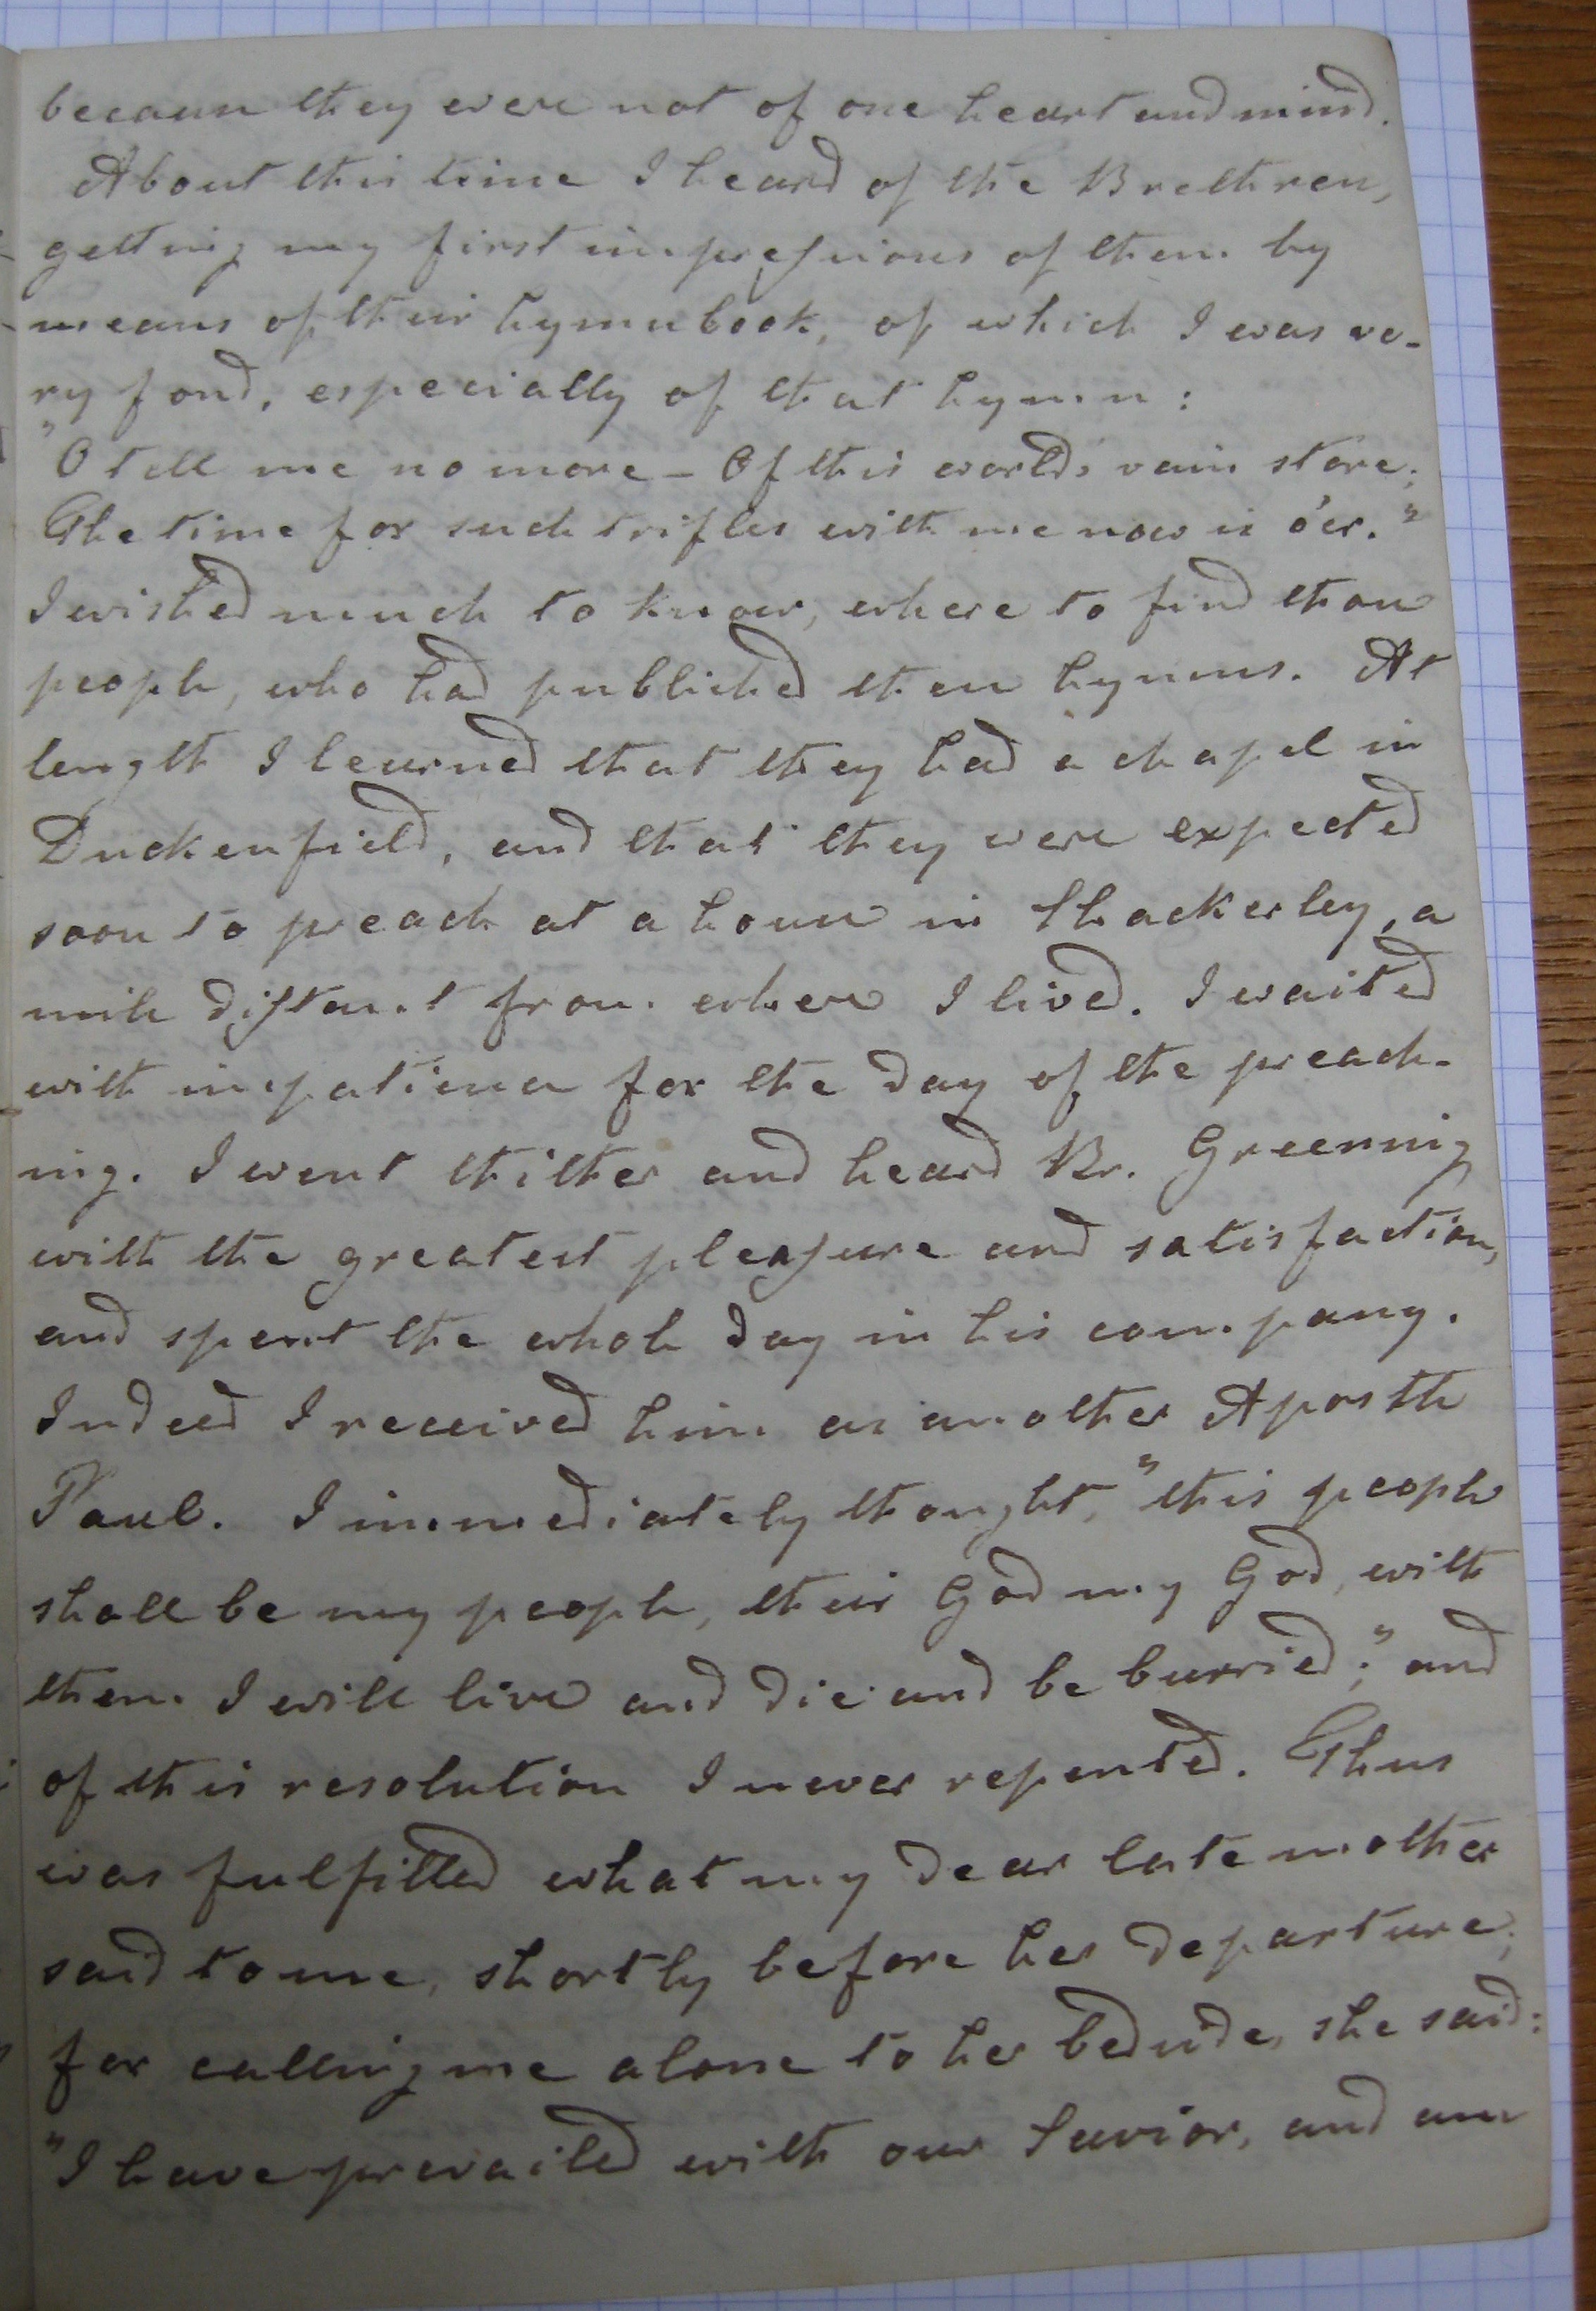 because they were not of one heart and mind.
About this time I heard of the Brethren,
getting my first impressions of them by
means of their hymnbook, of which I was ve-
ry fond, especially of that hymn:
"O tell me no more - Of this world's vain store;
The time for such trifles with me now is o'er."
I wished much to know, where to find those
people, who had published these hymns. At
length I learned that they had a chapel in
Duckenfield, and that they were expected
soon to preach at a house in Shackerley, a
mile distant from where I lived. I waited
with impatience for the day of the preach-
ing. I went thither and heard Br. Greening
with the greatest pleasure and satisfaction,
and spent the whole day in his company.
Indeed I received him as another Apostle
Paul. I immediately thought, "this people
shall be my people, their God my God, with
them I will live and die and be burried;" and
of this resolution I never repented. Thus
was fulfilled what my dear late mother
said to me, shortly before her departure;
for calling me alone to her bedside, she said:
"I have prevailed with our Savior, and am